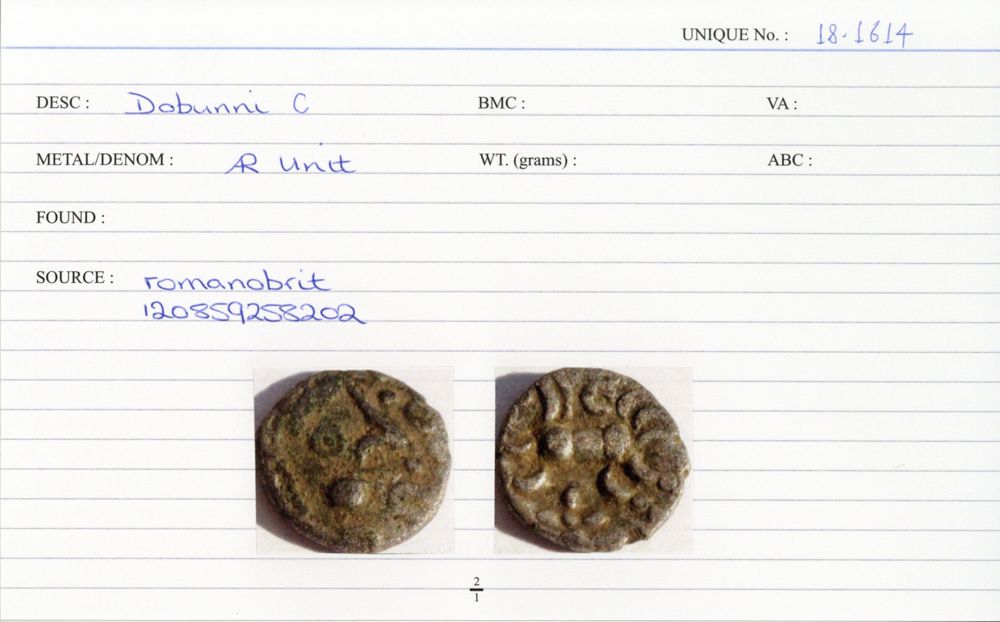 UNIQUE No. : 18.1614
DESC : Dobunni C BMC : VA :
METAL/DENOM : AR Unit WT. (grams) : ABC :
FOUND :
SOURCE : romanobrit
120859258202
2
1